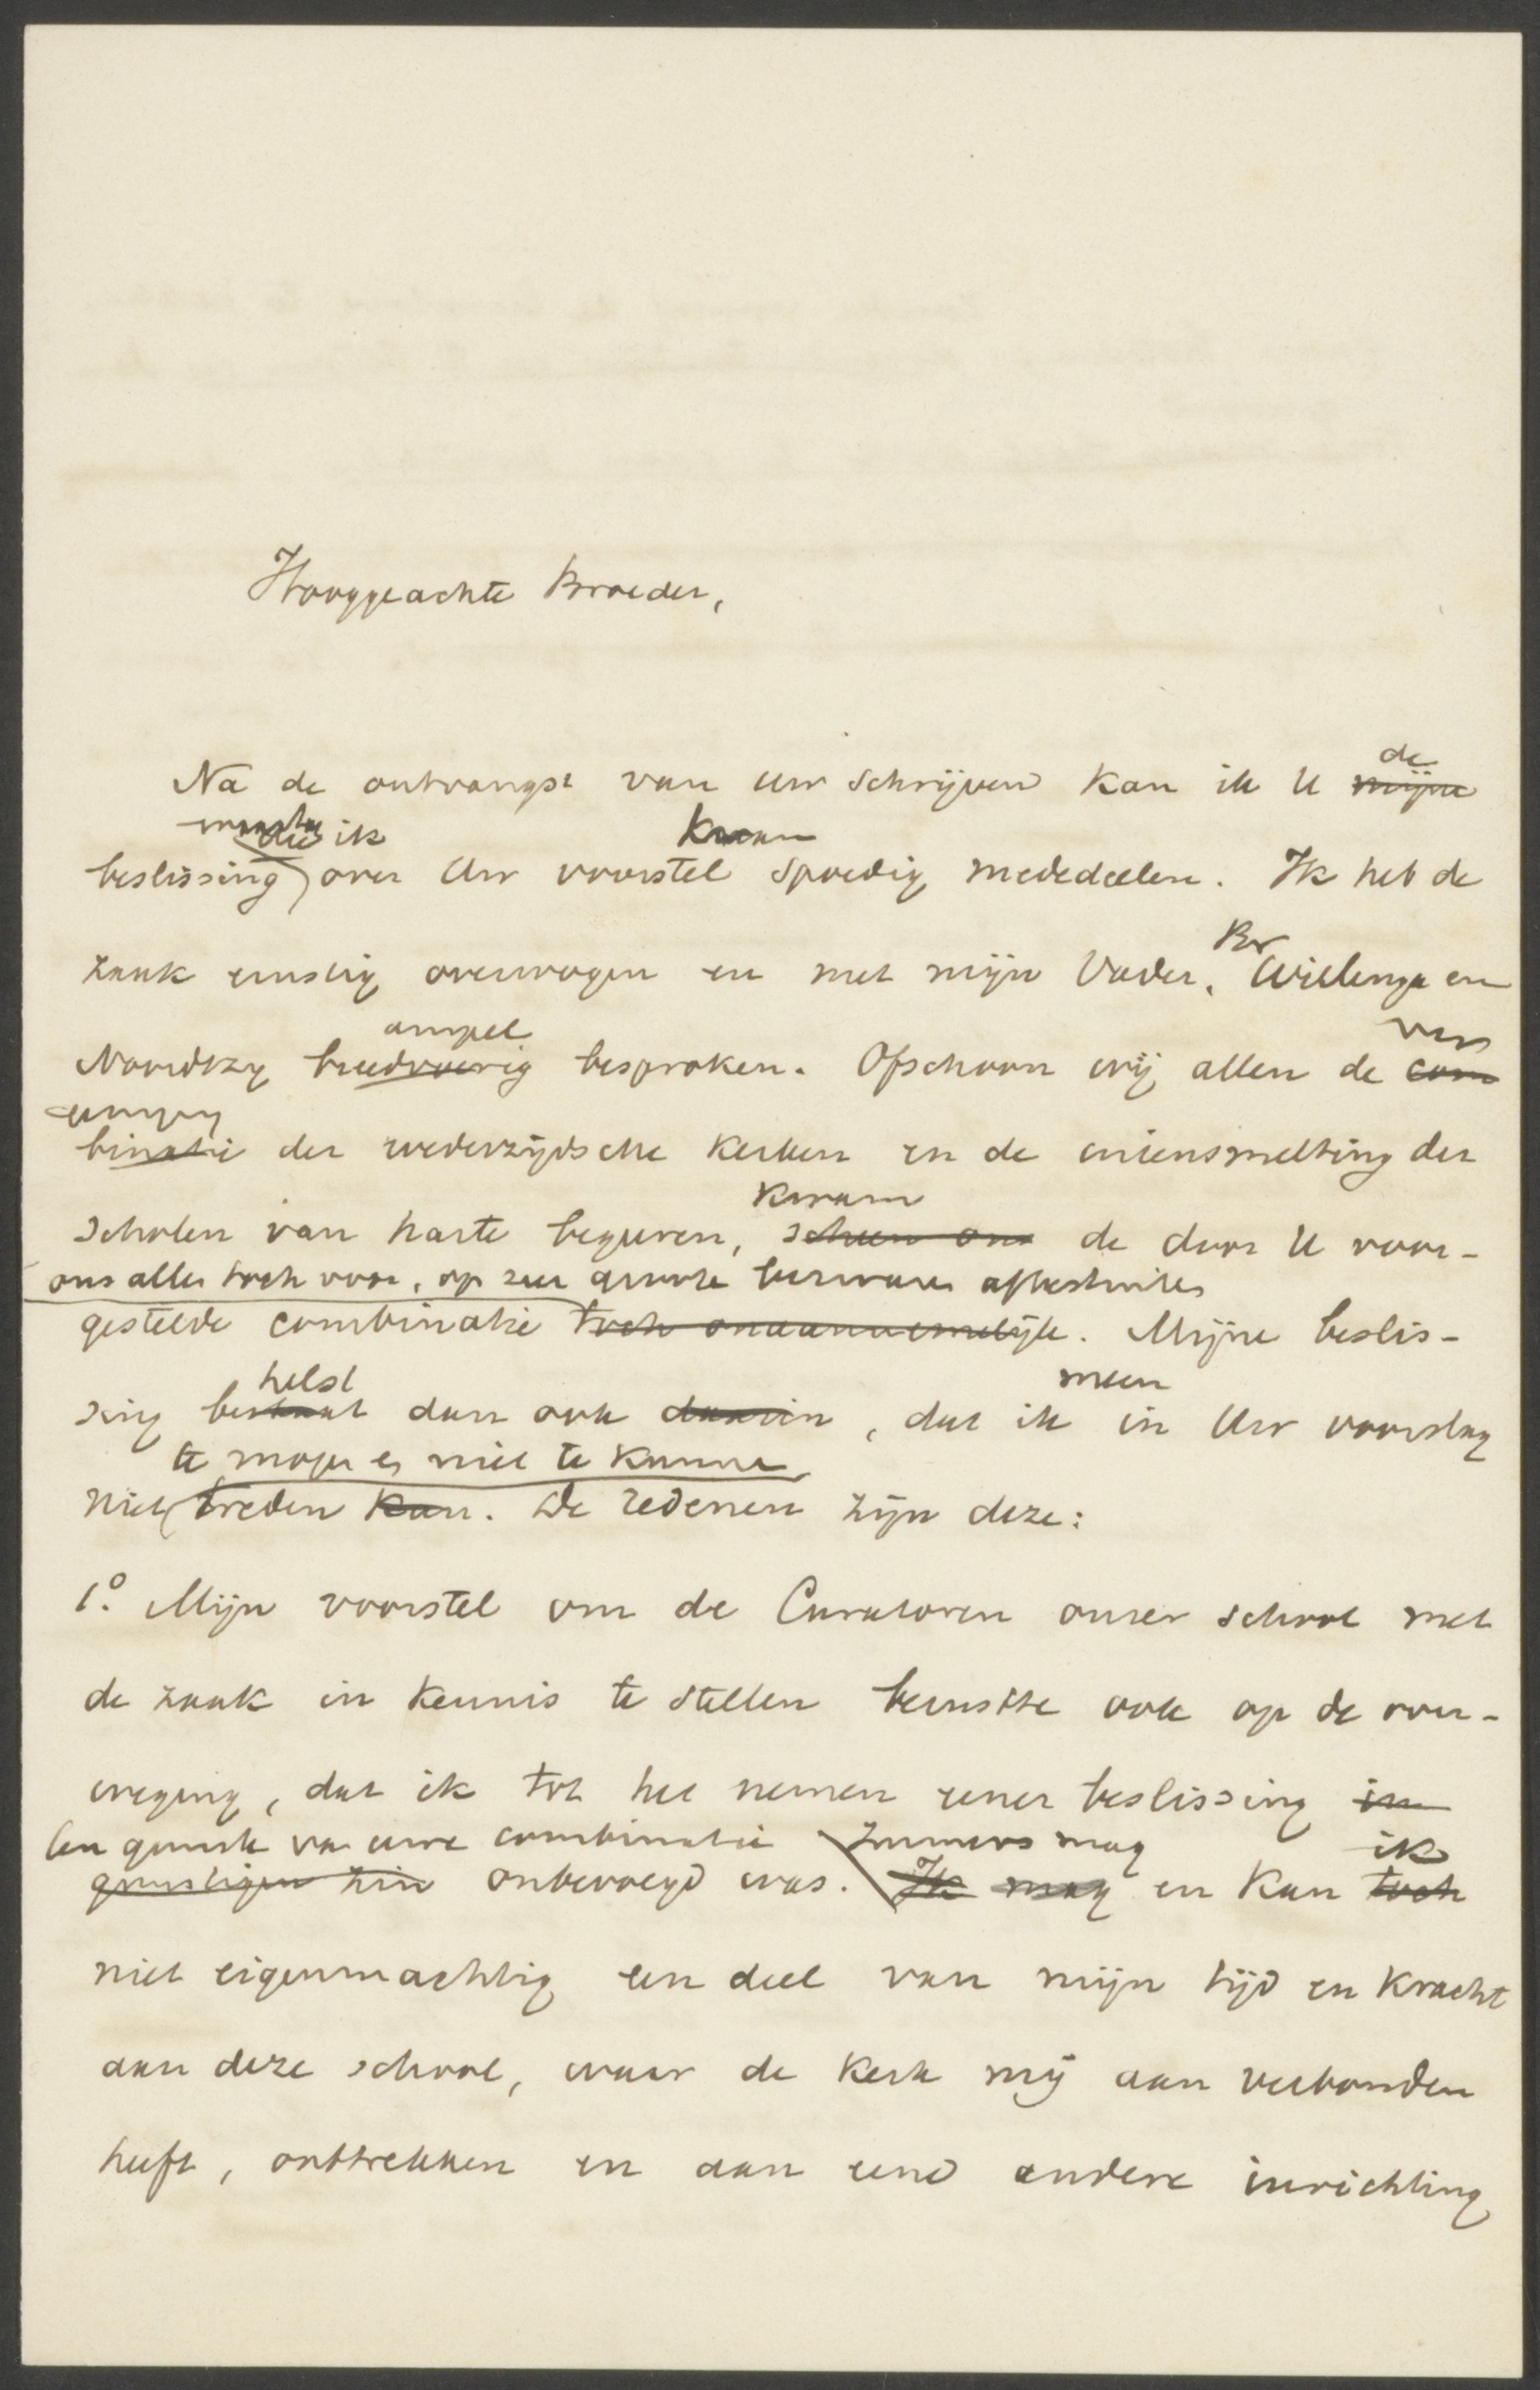 Hooggeachte Broeder,
de
Na de ontvangst van Uw schrijven kan ik U mijne
waartoe die ik kwam
beslissing over Uw voorstel spoedig mededeelen. Ik heb de
Br
zaak ernstig overwogen en met mijn Vader, Wielenga en
ampel ver
Noordtzy breedvoerig besproken. Ofschoon wij allen de com
eeniging
binatie der wederzijdsche Kerken en de ineensmelting der
kwam
scholen van harte begeeren, scheen ons de door U voor-
ons allen toch voor, op zeer groote bezwaren aftestuiten
gestelde combinatie toch onaannemelijk. Mijne beslis-
helst meen
sing bestaat dan ook daarin, dat ik in Uw voorslag
te mogen en niet te kunnen
niet treden kan. De redenen zijn deze:
1º. Mijn voorstel om de Curatoren onzer school met
de zaak in kennis te stellen berustte ook op de over-
weging, dat ik tot het nemen eener beslissing in
ten gunste van uwe combinatie Immers mag ik
gunstigen zin onbevoegd was. Ik mag en kan toch
niet eigenmachtig een deel van mijn tijd en kracht
aan deze school, waar de Kerk mij aan verbonden
heeft, onttrekken en aan eene andere inrichting